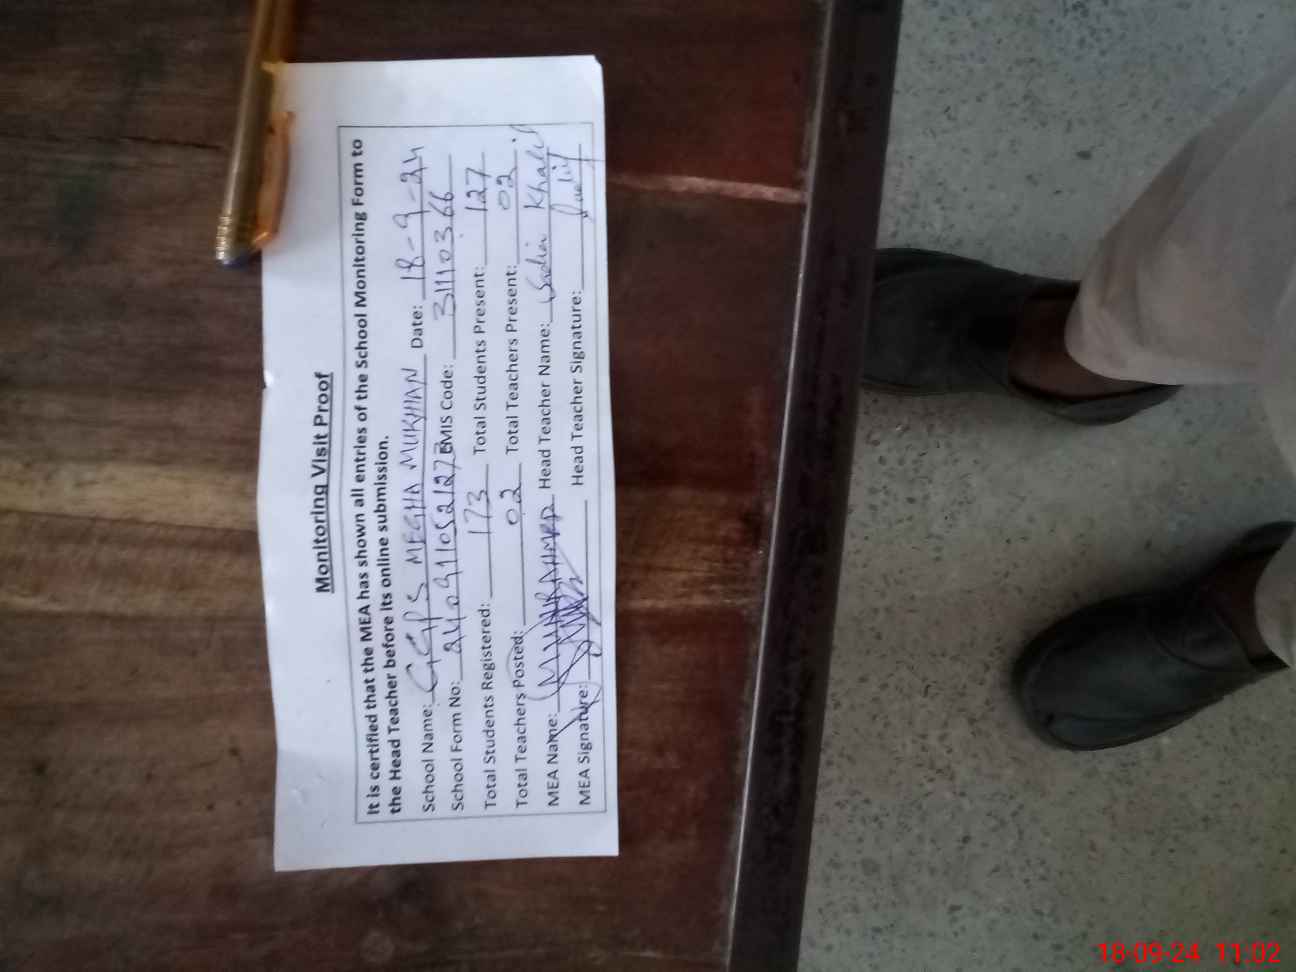 Monitoring Visit Proof
It is certified that the MEA has shown all entries of the School Monitoring Form to
the Head Teacher before its online submission.
School Name: GGPS MEGHA MUKHAN Date: 18-9-24
School Form No: 2409110521273 EMIS Code: 31110366
Total Students Registered: 173 Total Students Present: 127
Total Teachers Posted: 02 Total Teachers Present: 02
MEA Name: AHMED Head Teacher Name: Sadia Khalil
MEA Signature: Head Teacher Signature:
18-09-24 11:02